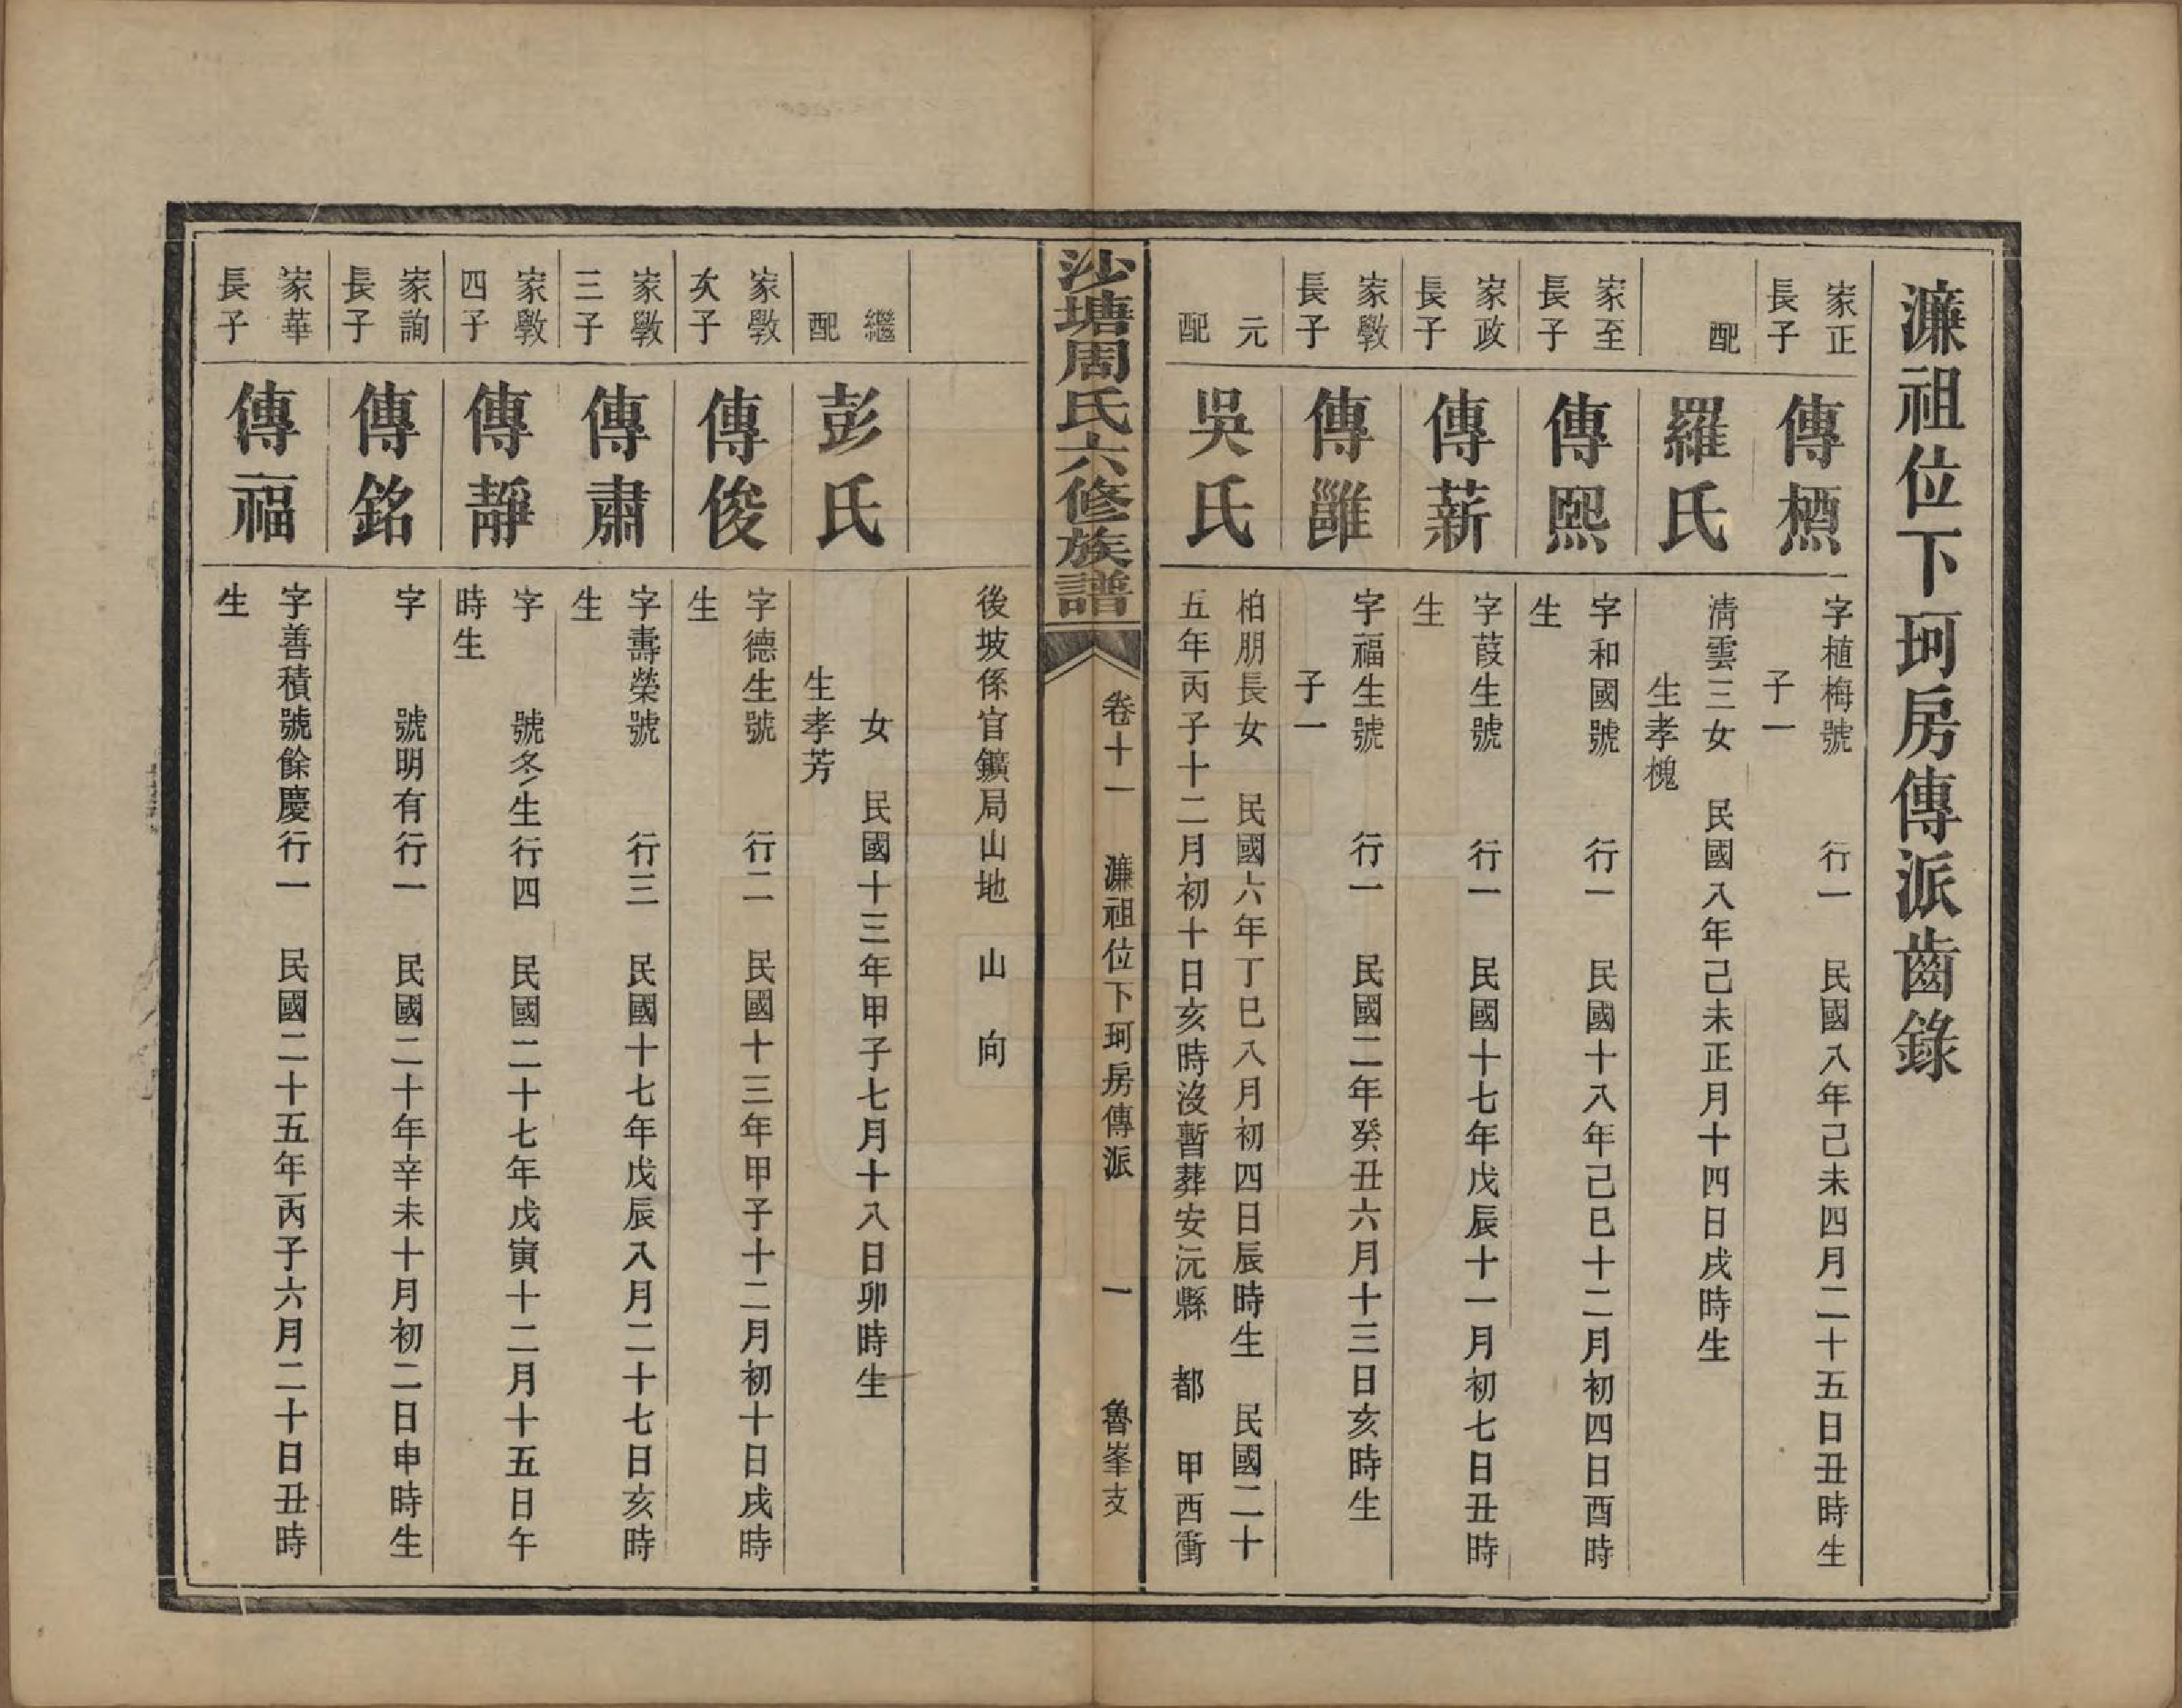 濂祖位下珂房傳派齒錄
家正
長子
傳槱
字植梅號　行一　民國八年己未四月二十五日丑時生
子一
配
羅氏
清雲三女　民國八年己未正月十四日戌時生
生孝槐
家至
長子
傳熙
字和國號　行一　民國十八年己巳十二月初四日酉時
生
家政
長子
傳薪
字葭生號　行一　民國十七年戊辰十一月初七日丑時
生
家斆
長子
傳雝
字福生號　行一　民國二年癸丑六月十三日亥時生
子一
元
配
吳氏
柏朋長女　民國六年丁巳八月初四日辰時生　民國二十
五年丙子十二月初十日亥時沒暫葬安沅縣　都　甲西衝
沙塘周氏六修族譜
卷十一　濂祖位下珂房傳派　一　魯峯支
後坡係官鑛局山地　山　向
繼
配
彭氏
女　民國十三年甲子七月十八日卯時生
生孝芳
家斆
次子
傳俊
字德生號　行二　民國十三年甲子十二月初十日戌時
生
家斆
三子
傳肅
字壽榮號　行三　民國十七年戊辰八月二十七日亥時
生
家斆
四子
傳靜
字　號冬生行四　民國二十七年戊寅十二月十五日午
時生
家詢
長子
傳銘
字　號明有行一　民國二十年辛未十月初二日申時生
家華
長子
傳福
字善積號餘慶行一　民國二十五年丙子六月二十日丑時
生